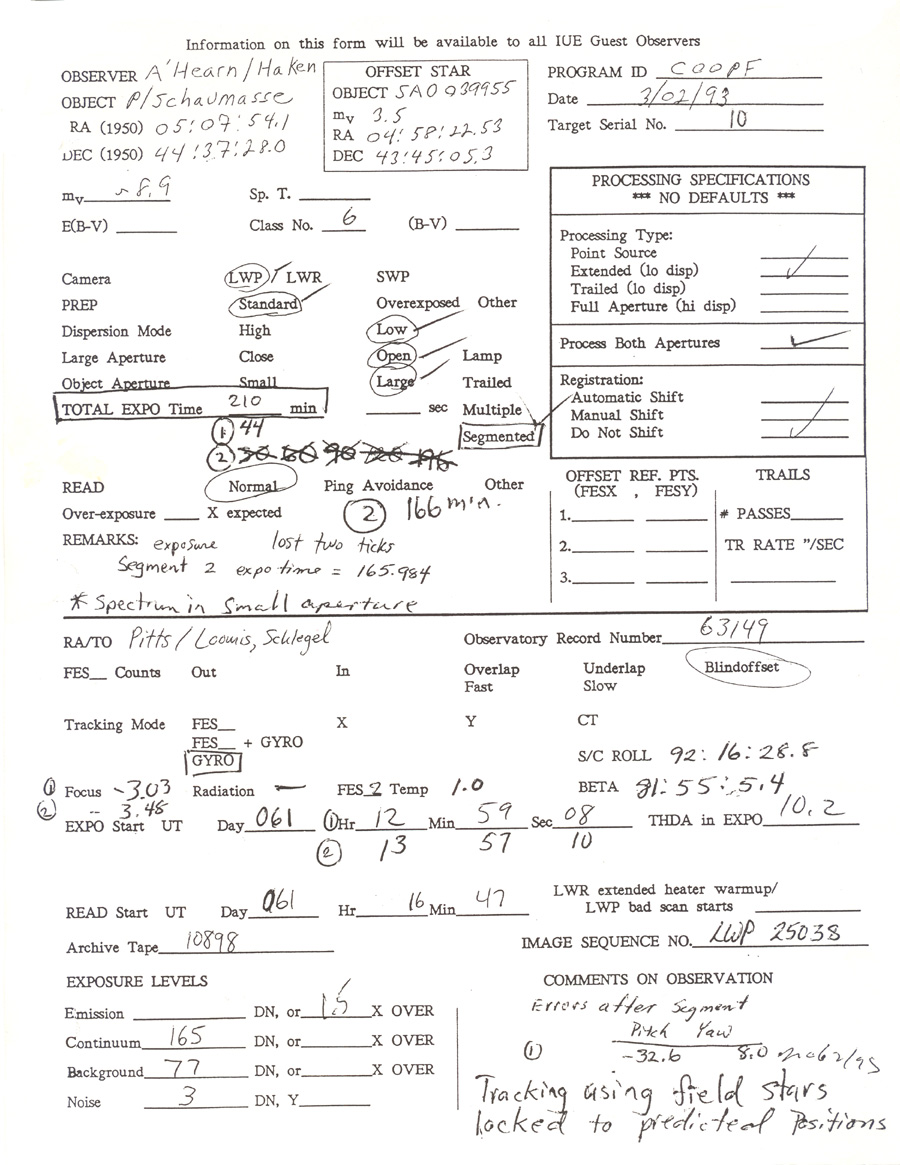 Information on this form will be available to all IUE Guest Observers
OBSERVER A'Hearn/Haken
OBJECT P/Schaumasse
RA (1950) 05:07:54.1
DEC (1950) 44:37:28.0
OFFSET STAR
OBJECT SAO 039955
mv 3.5
RA 04:58:22.53
DEC 43:45:05.3
PROGRAM ID COOPF
Date 3/02/93
Target Serial No. 10
mv ~8.9 Sp. T.
E(B-V) Class No. 6 (B-V)
PROCESSING SPECIFICATIONS
*** NO DEFAULTS ***
Processing Type:
Point Source
Extended (lo disp)
Trailed (lo disp)
Full Aperture (hi disp)
Process Both Apertures
Registration:
Automatic Shift
Manual Shift
Do Not Shift
Camera LWP / LWR SWP
PREP Standard Overexposed Other
Dispersion Mode High Low
Large Aperture Close Open Lamp
Object Aperture Small Large Trailed
TOTAL EXPO Time 210 min sec Multiple
① 44 Segmented
② 30 60 90 120
READ Normal Ping Avoidance Other
Over-exposure X expected ② 166 min.
REMARKS: exposure lost two ticks
Segment 2 expo time = 165.984
* Spectrum in Small aperture
OFFSET REF. PTS.
(FESX , FESY)
1.
2.
3.
TRAILS
# PASSES
TR RATE "/SEC
RA/TO Pitts/Loomis, Schlegel Observatory Record Number 63149
FES__ Counts Out In Overlap Underlap Blindoffset
Fast Slow
Tracking Mode FES__ X Y CT
FES__ + GYRO
GYRO
S/C ROLL 92:16:28.8
① Focus -3.03 Radiation — FES 2 Temp 1.0 BETA 81:55:5.4
② -3.48
EXPO Start UT Day 061 ① Hr 12 Min 59 Sec 08 THDA in EXPO 10.2
② 13 57 10
READ Start UT Day 061 Hr 16 Min 47
LWR extended heater warmup/
LWP bad scan starts
Archive Tape 10898 IMAGE SEQUENCE NO. LWP 25038
EXPOSURE LEVELS
Emission DN, or 1.5 X OVER
Continuum 165 DN, or X OVER
Background 77 DN, or X OVER
Noise 3 DN, Y
COMMENTS ON OBSERVATION
Errors after Segment
Pitch Yaw
① -32.6 8.0
Tracking using field stars
locked to predicted Positions